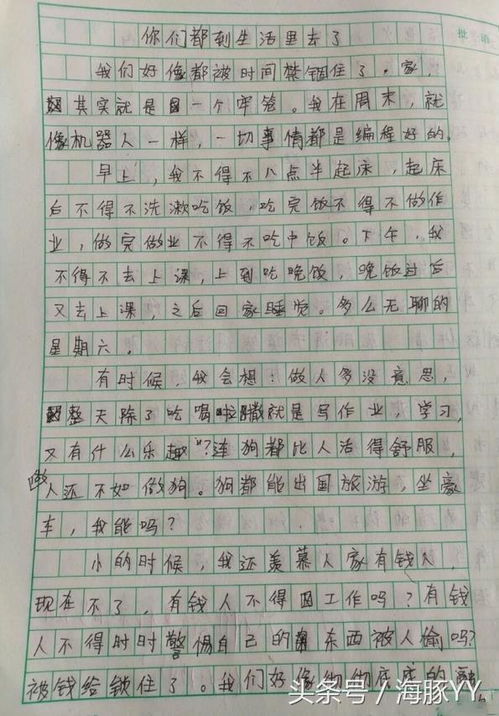 批
你们都到生活里去了
我们好像都被时间禁锢住了。家,
其实就是一个牢笼。我在周末,就
像机器人一样,一切事情都是编程好的,
早上,我不得不八点半起床,起床
后不得不洗漱吃饭,吃完饭不得不做作
业,做完做业不得不吃中饭。下午,我
不得不去上课,上到吃晚饭,晚饭过后
又去上课,之后回家睡觉。多么无聊的
星期六。
有时候,我会想:做人多没意思,
整天除了吃喝拉撒就是写作业,学习,
又有什么乐趣?连狗都比人活得舒服,
做人还不如做狗。狗都能出国旅游,坐豪
车,我能吗?
小的时候,我还羡慕人家有钱人,
现在不了,有钱人不得工作吗?有钱
人不得时时警惕自己的东西被人偷吗?
被钱给锁住了。我们好像彻彻底底的
头条号/海豚YY